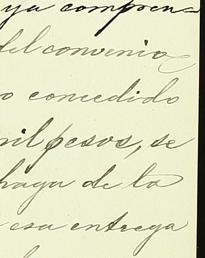 ya compren-
del convenio
o concedido
mil pesos, se
haga de la
esa entrega